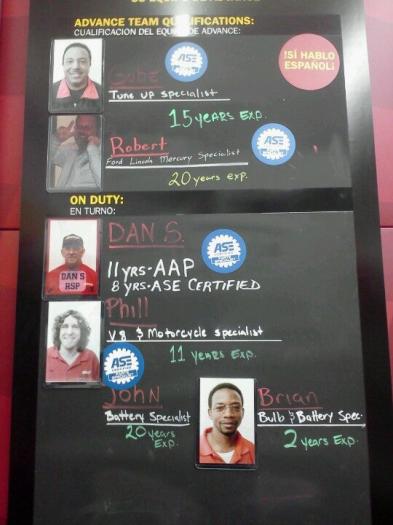 ADVANCE TEAM QUALIFICATIONS:
CUALIFICACION DEL EQUIPO DE ADVANCE:
Gabe
ASE
¡SÍ HABLO
ESPAÑOL!
Tune up specialist
15 years Exp.
Robert
ASE
Ford Lincoln Mercury Specialist
20 years exp.
ON DUTY:
EN TURNO:
DAN S.
ASE
DAN S
RSP
11 yrs-AAP
8 yrs-ASE CERTIFIED
Phill
V8 & Motorcycle specialist
ASE
11 years Exp.
John
Battery Specialist
20 years
Exp.
Brian
Bulb & Battery Spec.
2 years Exp.